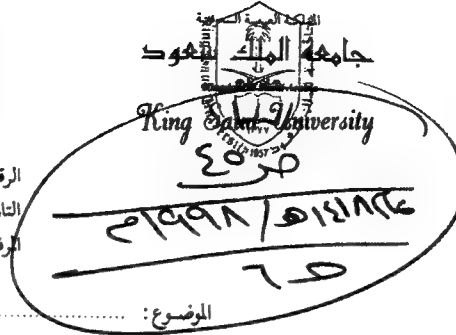 المملكة العربية السعودية
جامعة الملك سعود
King Saud University
1957
ص ٤٥
١٤١٨هـ / ١٩٩٨م
ص ٦
الموضوع :